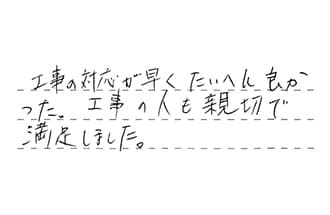 工事の対応が早くたいへん良か
った。工事の人も親切で
満足しました。